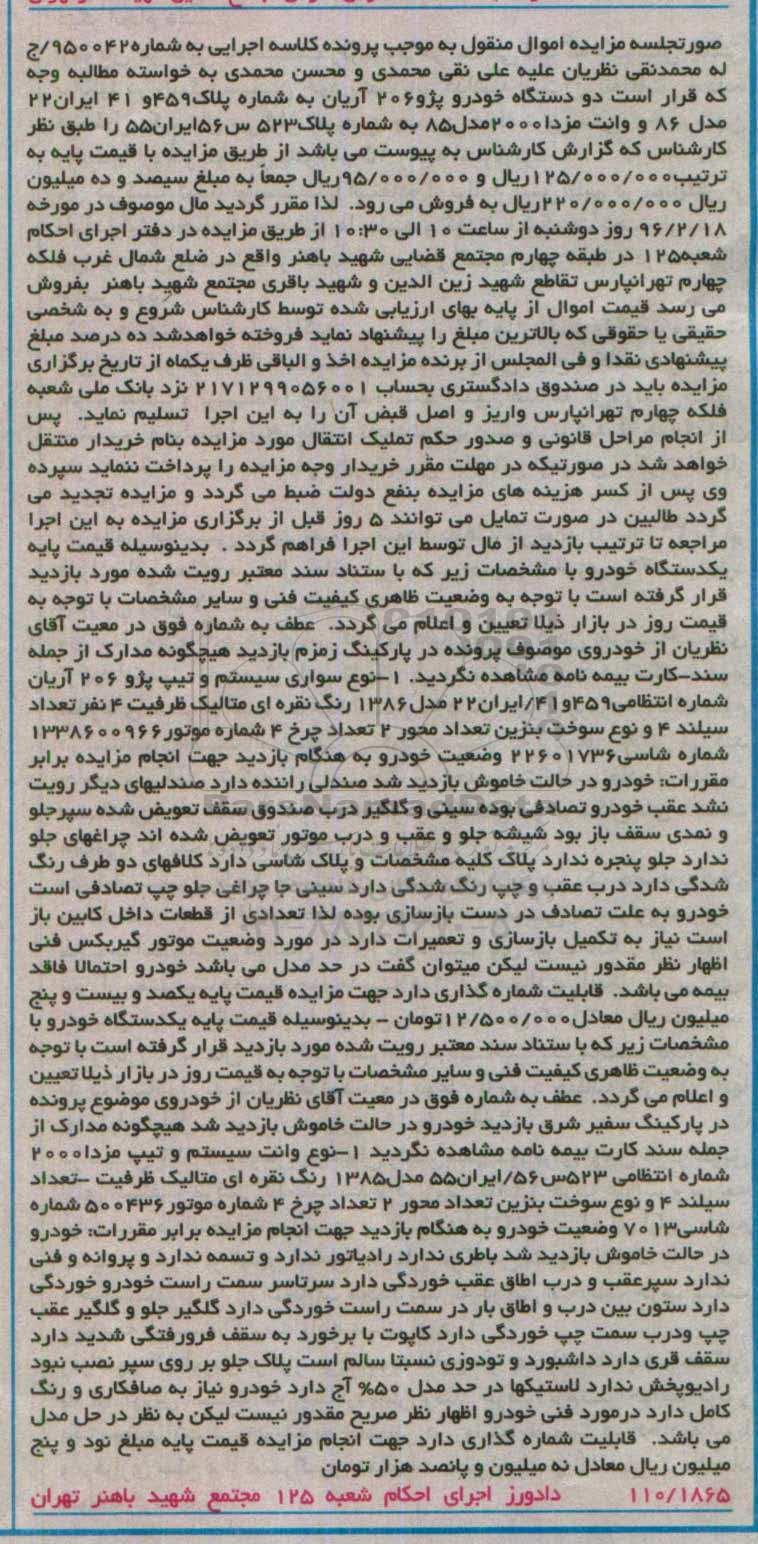 صورتجلسه مزایده اموال منقول به موجب پرونده کلاسه اجرایی به شماره ۹۵۰۰۴۲/ج
له محمدنقی نظریان علیه علی نقی محمدی و محسن محمدی به خواسته مطالبه وجه
که قرار است دو دستگاه خودرو پژو۲۰۶ آریان به شماره پلاک۴۵۹و ۴۱ ایران۲۲
مدل ۸۶ و وانت مزدا۲۰۰۰مدل۸۵ به شماره پلاک۵۲۳ س۵۶ایران۵۵ را طبق نظر
کارشناس که گزارش کارشناس به پیوست می باشد از طریق مزایده با قیمت پایه به
ترتیب۱۲۵/۰۰۰/۰۰۰ریال و ۹۵/۰۰۰/۰۰۰ریال جمعاً به مبلغ سیصد و ده میلیون
ریال ۲۲۰/۰۰۰/۰۰۰ریال به فروش می رود. لذا مقرر گردید مال موصوف در مورخه
۹۶/۲/۱۸ روز دوشنبه از ساعت ۱۰ الی ۱۰:۳۰ از طریق مزایده در دفتر اجرای احکام
شعبه۱۲۵ در طبقه چهارم مجتمع قضایی شهید باهنر واقع در ضلع شمال غرب فلکه
چهارم تهرانپارس تقاطع شهید زین الدین و شهید باقری مجتمع شهید باهنر بفروش
می رسد قیمت اموال از پایه بهای ارزیابی شده توسط کارشناس شروع و به شخصی
حقیقی یا حقوقی که بالاترین مبلغ را پیشنهاد نماید فروخته خواهدشد ده درصد مبلغ
پیشنهادی نقدا و فی المجلس از برنده مزایده اخذ و الباقی ظرف یکماه از تاریخ برگزاری
مزایده باید در صندوق دادگستری بحساب ۲۱۷۱۲۹۹۰۵۶۰۰۱ نزد بانک ملی شعبه
فلکه چهارم تهرانپارس واریز و اصل قبض آن را به این اجرا تسلیم نماید. پس
از انجام مراحل قانونی و صدور حکم تملیک انتقال مورد مزایده بنام خریدار منتقل
خواهد شد در صورتیکه در مهلت مقرر خریدار وجه مزایده را پرداخت ننماید سپرده
وی پس از کسر هزینه های مزایده بنفع دولت ضبط می گردد و مزایده تجدید می
گردد طالبین در صورت تمایل می توانند ۵ روز قبل از برگزاری مزایده به این اجرا
مراجعه تا ترتیب بازدید از مال توسط این اجرا فراهم گردد . بدینوسیله قیمت پایه
یکدستگاه خودرو با مشخصات زیر که با ستناد سند معتبر رویت شده مورد بازدید
قرار گرفته است با توجه به وضعیت ظاهری کیفیت فنی و سایر مشخصات با توجه به
قیمت روز در بازار ذیلا تعیین و اعلام می گردد. عطف به شماره فوق در معیت آقای
نظریان از خودروی موصوف پرونده در پارکینگ زمزم بازدید هیچگونه مدارک از جمله
سند-کارت بیمه نامه مشاهده نگردید. ۱-نوع سواری سیستم و تیپ پژو ۲۰۶ آریان
شماره انتظامی۴۵۹و۴۱/ایران۲۲ مدل۱۳۸۶ رنگ نقره ای متالیک ظرفیت ۴ نفر تعداد
سیلند ۴ و نوع سوخت بنزین تعداد محور ۲ تعداد چرخ ۴ شماره موتور۱۳۳۸۶۰۰۹۶۶
شماره شاسی۲۲۶۰۱۷۳۶ وضعیت خودرو به هنگام بازدید جهت انجام مزایده برابر
مقررات: خودرو در حالت خاموش بازدید شد صندلی راننده دارد صندلیهای دیگر رویت
نشد عقب خودرو تصادفی بوده سینی و گلگیر درب صندوق سقف تعویض شده سپرجلو
و نمدی سقف باز بود شیشه جلو و عقب و درب موتور تعویض شده اند چراغهای جلو
ندارد جلو پنجره ندارد پلاک کلیه مشخصات و پلاک شاسی دارد کلافهای دو طرف رنگ
شدگی دارد درب عقب و چپ رنگ شدگی دارد سینی جا چراغی جلو چپ تصادفی است
خودرو به علت تصادف در دست بازسازی بوده لذا تعدادی از قطعات داخل کابین باز
است نیاز به تکمیل بازسازی و تعمیرات دارد در مورد وضعیت موتور گیربکس فنی
اظهار نظر مقدور نیست لیکن میتوان گفت در حد مدل می باشد خودرو احتمالا فاقد
بیمه می باشد. قابلیت شماره گذاری دارد جهت مزایده قیمت پایه یکصد و بیست و پنج
میلیون ریال معادل۱۲/۵۰۰/۰۰۰تومان - بدینوسیله قیمت پایه یکدستگاه خودرو با
مشخصات زیر که با ستناد سند معتبر رویت شده مورد بازدید قرار گرفته است با توجه
به وضعیت ظاهری کیفیت فنی و سایر مشخصات با توجه به قیمت روز در بازار ذیلا تعیین
و اعلام می گردد. عطف به شماره فوق در معیت آقای نظریان از خودروی موضوع پرونده
در پارکینگ سفیر شرق بازدید خودرو در حالت خاموش بازدید شد هیچگونه مدارک از
جمله سند کارت بیمه نامه مشاهده نگردید ۱-نوع وانت سیستم و تیپ مزدا۲۰۰۰
شماره انتظامی ۵۲۳س۵۶/ایران۵۵ مدل۱۳۸۵ رنگ نقره ای متالیک ظرفیت -تعداد
سیلند ۴ و نوع سوخت بنزین تعداد محور ۲ تعداد چرخ ۴ شماره موتور۵۰۰۴۳۶ شماره
شاسی۷۰۱۳ وضعیت خودرو به هنگام بازدید جهت انجام مزایده برابر مقررات: خودرو
در حالت خاموش بازدید شد باطری ندارد رادیاتور ندارد و تسمه ندارد و پروانه و فنی
ندارد سپرعقب و درب اطاق عقب خوردگی دارد سرتاسر سمت راست خودرو خوردگی
دارد ستون بین درب و اطاق بار در سمت راست خوردگی دارد گلگیر جلو و گلگیر عقب
چپ ودرب سمت چپ خوردگی دارد کاپوت با برخورد به سقف فرورفتگی شدید دارد
سقف قری دارد داشبورد و تودوزی نسبتا سالم است پلاک جلو بر روی سپر نصب نبود
رادیوپخش ندارد لاستیکها در حد مدل ۵۰% آج دارد خودرو نیاز به صافکاری و رنگ
کامل دارد درمورد فنی خودرو اظهار نظر صریح مقدور نیست لیکن به نظر در حل مدل
می باشد. قابلیت شماره گذاری دارد جهت انجام مزایده قیمت پایه مبلغ نود و پنج
میلیون ریال معادل نه میلیون و پانصد هزار تومان
۱۱۰/۱۸۶۵ دادورز اجرای احکام شعبه ۱۲۵ مجتمع شهید باهنر تهران